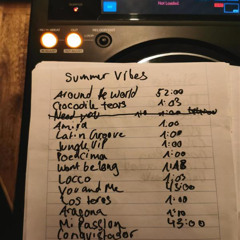 Not Loaded
Summer Vibes
Around the world 52:00
Crocodile tears 1:03
Need you
Amira 1:00
Latin Groove 1:00
Jungle VIP 1:00
Poemcima 1:00
Wont be long 1:18
Locco 1:03
You and Me 43:00
Los toros 1:00
Aragona 1:00
Mi Passion 43:00
Conquistador